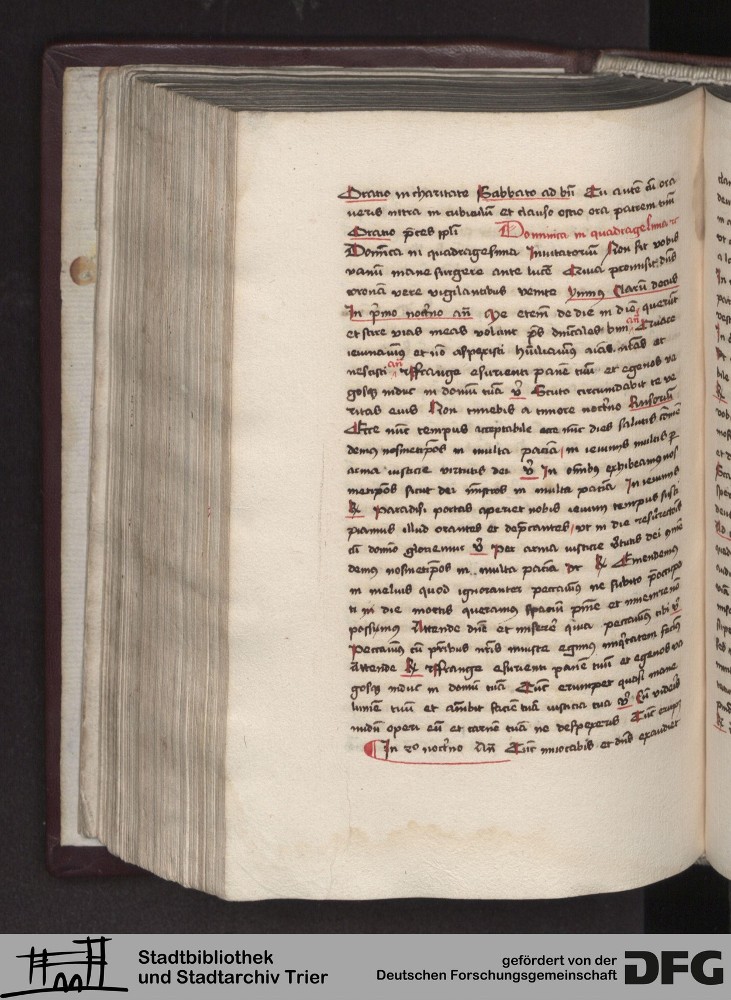 Oratio in charitate Sabbato ad bñ Tu autē cū ora
veris intra in cubiculū et clauso ostio ora patrem tuū
Oratio p̄ces pp̄li Dominica in quadragesima
Domīca in quadragesima Invitatoriū Non sit vobis
vanū mane surgere ante lucē Quia promisit dñs
coronā vere vigilantibus venite Ymnus Clarū decus
In p̄mo noct̄no añ Me etenī de die in diē querūt
et scire vias meas volunt p̄s dn̄icales añ Quare
ieiunavimus et nō aspexisti hūiliavimus aīas nr̄as et
nescisti añ Frange esurienti panē tuū et egenos va
gosq̄ induc in domū tuā v̄ Scuto circumdabit te ve
ritas eius Non timebis a timore noct̄no
Ecce nūc tempus acceptabile ecce nūc dies salutis cōmē
demus nosmetip̄os in multa paciā in ieiuniis multis p̄
arma iusticie virtutis dei v̄ In omībus exhibeamus nos
metip̄os sicut dei mīstros in multa paciā In ieiuniis
R̄ Paradisi portas aperiet nobis ieiunii tempus susci
piamus illud orantes et dep̄cantes ut in die resurrectōis
cū domīo gloriemur v̄ Per arma iusticie v̄tutis dei cōmē
demus nosmetip̄os in multa paciā Ut R̄ Emendemus
in melius quod ignoranter peccavimus ne subito p̄occupa
ti in die mortis queramus spaciū pn̄ie et invenire nō
possumus Attende dñe et miserē quia peccavimus tibi v̄
Peccavimus cū pr̄ibus nr̄is iniuste egimus iniquitatem fecimus
Attende R̄ Frange esurienti panē tuū et egenos va
gosq̄ induc in domū tuā Tūc erumpet quasi mane
lumē tuū et anībit faciē tuā iusticia tua v̄ Cū videris
nudū operi eū et carnē tuā ne despexeris Tūc erumpet
In 2o noct̄no Añ Tūc invocabis et dñs exaudiet
Stadtbibliothek
und Stadtarchiv Trier
gefördert von der
Deutschen Forschungsgemeinschaft
DFG